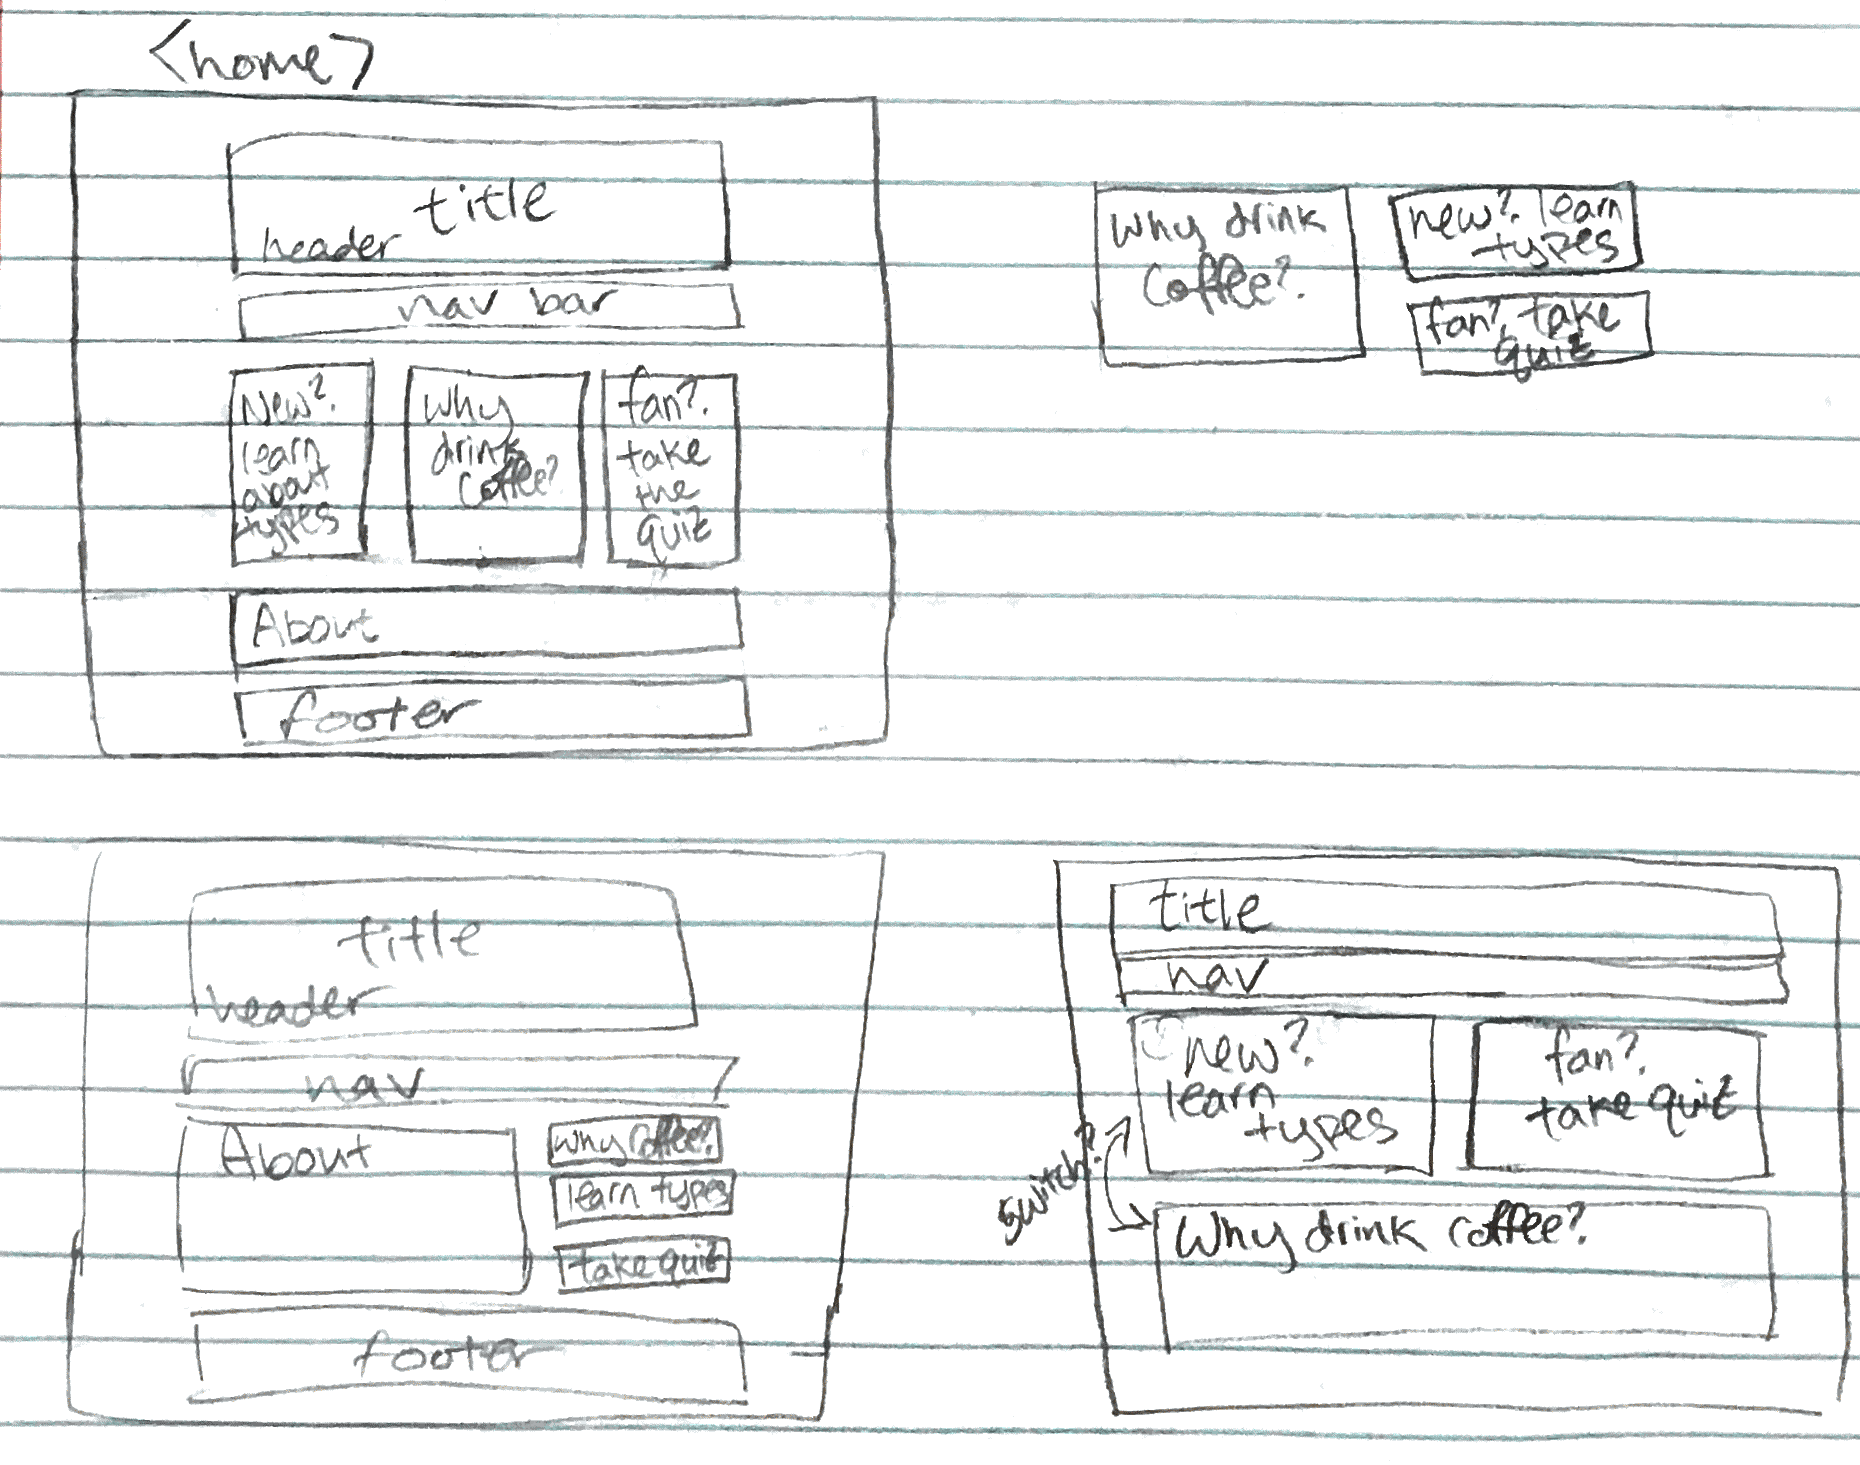 <home>
title
header
nav bar
New?
learn
about
types
Why
drink
coffee?
fan?
take
the
quiz
About
footer
Why drink
coffee?
new? learn
types
fan? take
quiz
title
header
nav
About
Why coffee?
learn types
take quiz
footer
title
nav
new?
learn
types
fan?
take quiz
switch?
Why drink coffee?